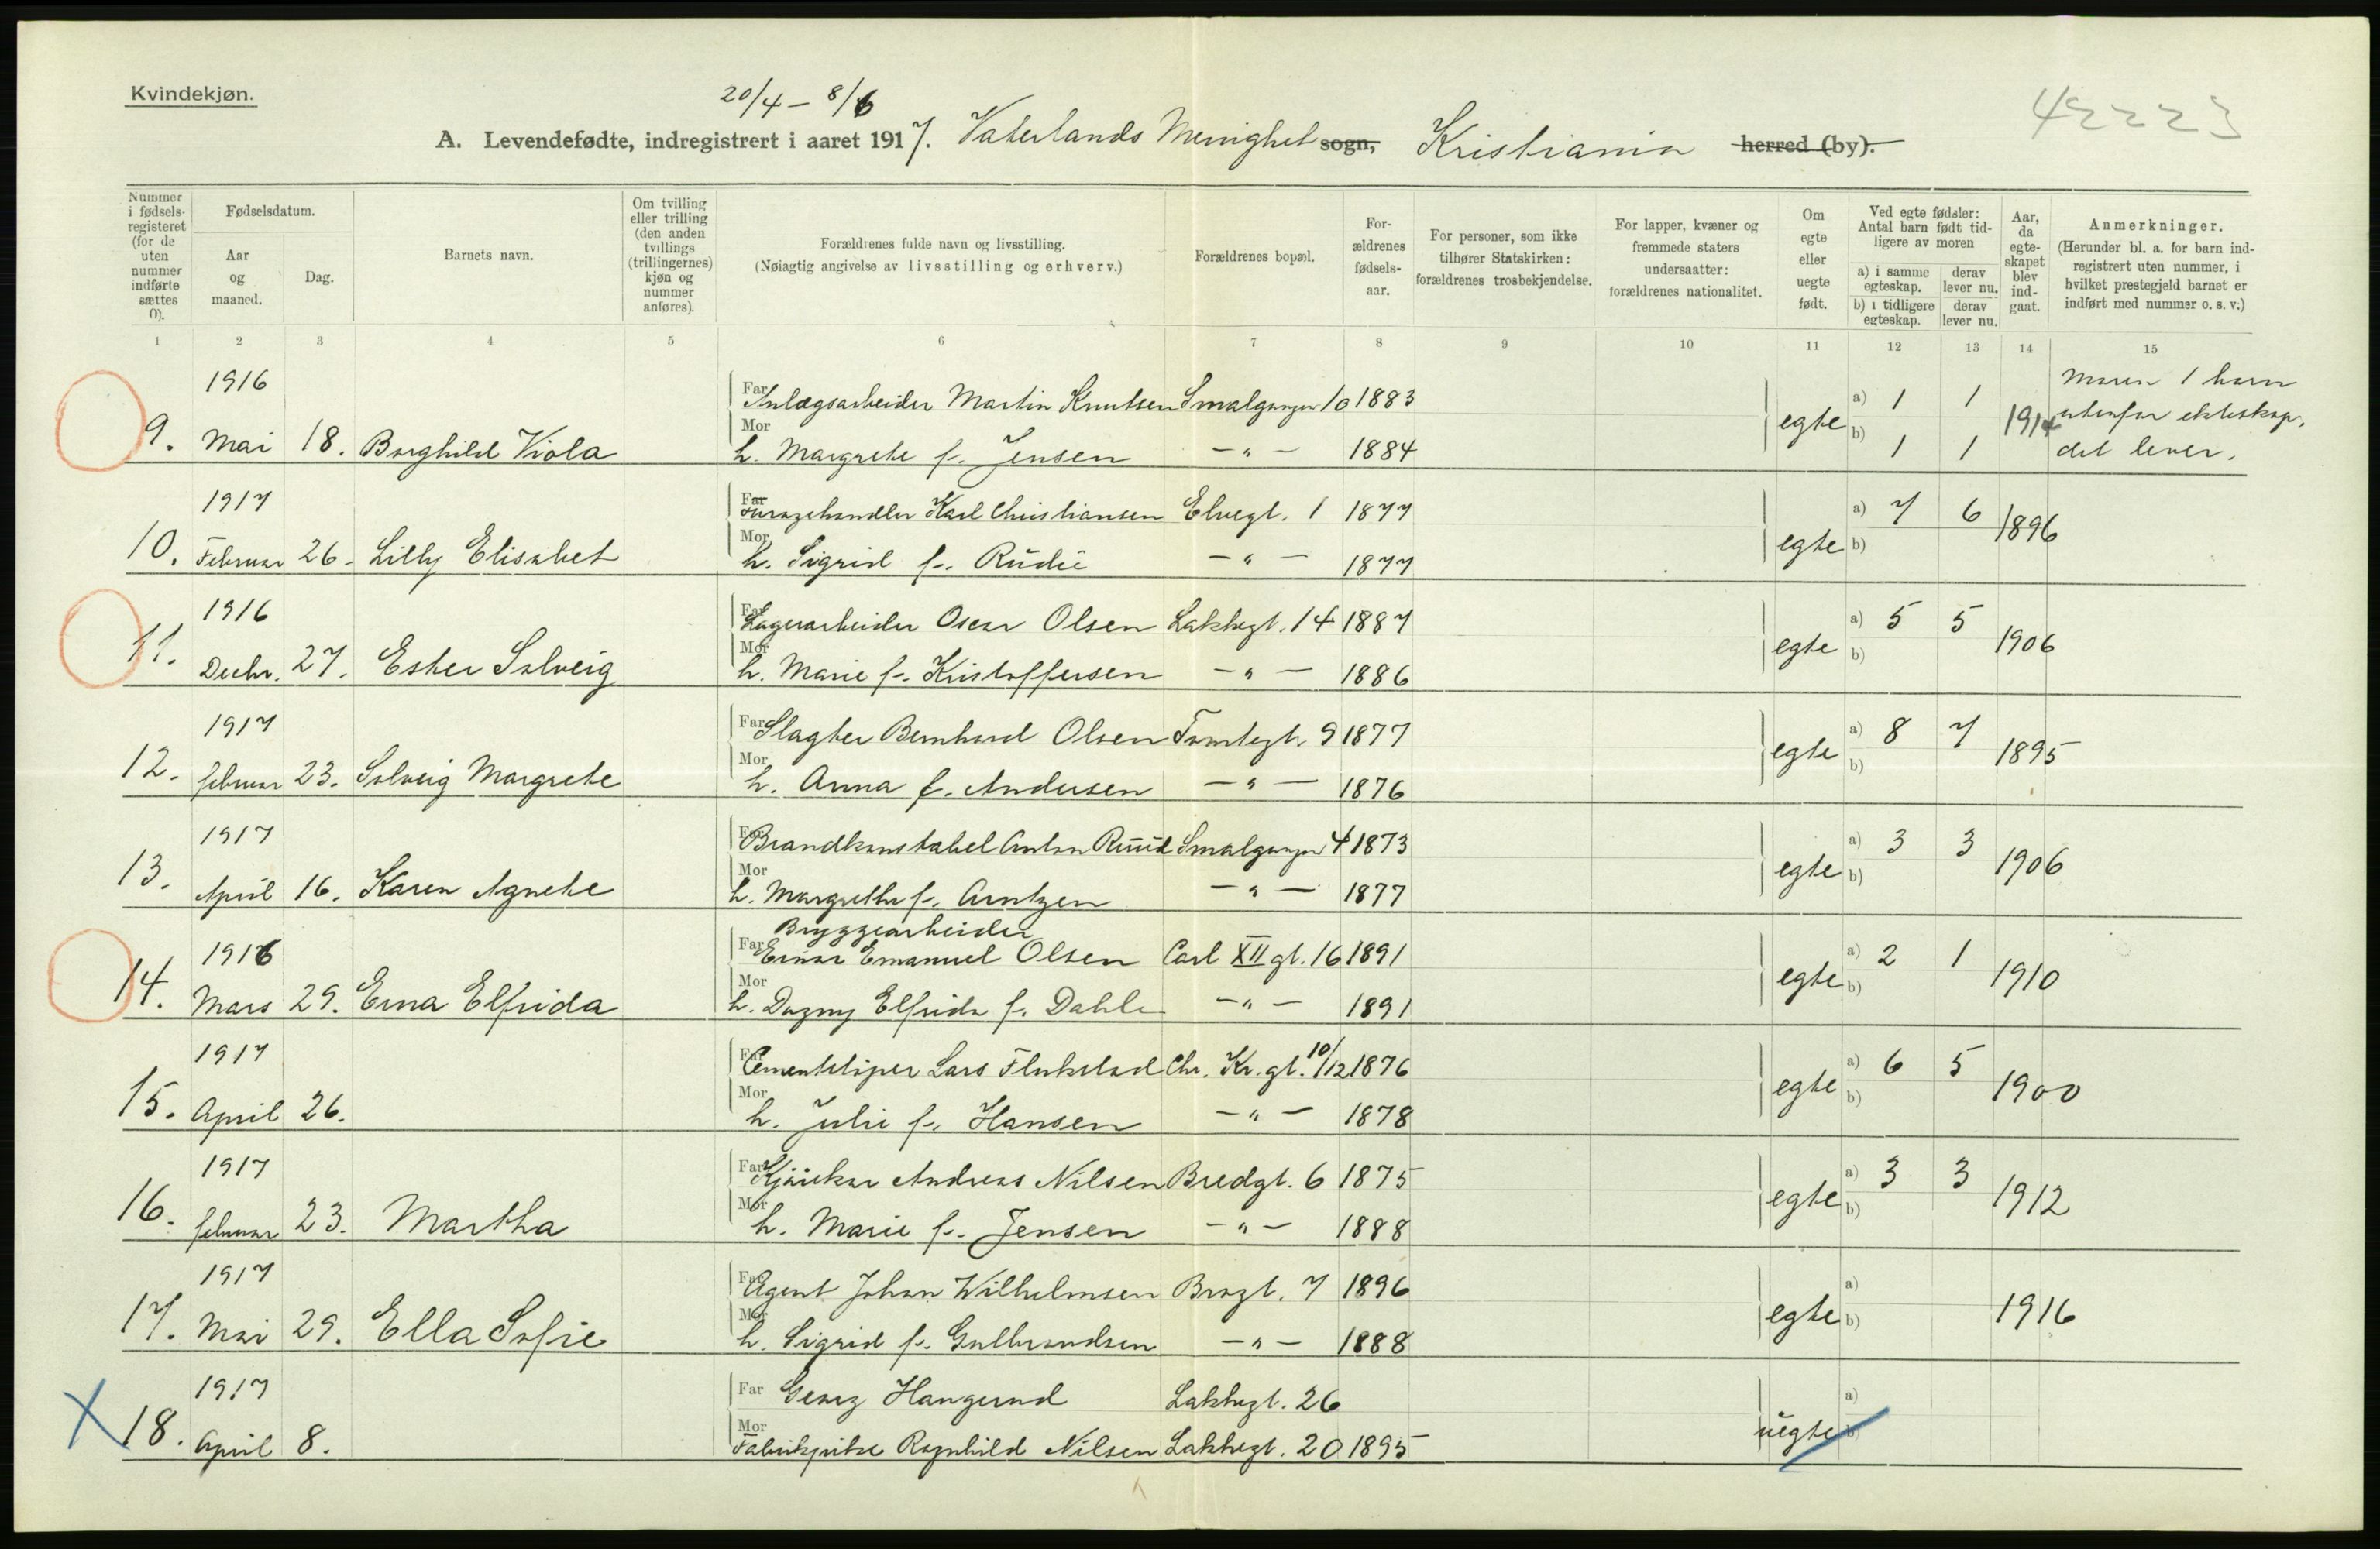 Kvindekjøn.
20/4 – 8/6
42223
A. Levendefødte, indregistrert i aaret 1917. Vaterlands Menighet sogn, Kristiania herred (by).
Nummer i fødselsregisteret (for de uten nummer indførte sættes 0).
Fødselsdatum.
Aar og maaned.
Dag.
Barnets navn.
Om tvilling eller trilling (den anden tvillings (trillingernes) kjøn og nummer anføres).
Forældrenes fulde navn og livsstilling.
(Nøiagtig angivelse av livsstilling og erhverv.)
Forældrenes bopæl.
Forældrenes fødselsaar.
For personer, som ikke tilhører Statskirken: forældrenes trosbekjendelse.
For lapper, kvæner og fremmede staters undersaatter: forældrenes nationalitet.
Om egte eller uegte født.
Ved egte fødsler: Antal barn født tidligere av moren
a) i samme egteskap. derav lever nu.
b) i tidligere egteskap. derav lever nu.
Aar, da egteskapet blev indgaat.
Anmerkninger.
(Herunder bl. a. for barn indregistrert uten nummer, i hvilket prestegjeld barnet er indført med nummer o. s. v.)
1 2 3 4 5 6 7 8 9 10 11 12 13 14 15
1916 Far Anlægsarbeider Martin Knutsen Smalgangen 10 1883 a) 1 1 Moren 1 barn
9. Mai 18. Borghild Viola egte 1914 utenfor ekteskap,
Mor h. Margrete f. Jensen – " – 1884 b) 1 1 det lever.
1917 Far Furagehandler Karl Christiansen Elvegt. 1 1877 a) 7 6
10. Februar 26. Lilly Elisabet Mor h. Sigrid f. Rudie – " – 1877 egte b) 1896
1916 Far Lagerarbeider Oscar Olsen Lakkegt. 14 1887 a) 5 5
11. Decbr. 27. Ester Solveig Mor h. Marie f. Kristoffersen – " – 1886 egte b) 1906
1917 Far Slagter Bernhard Olsen Tomtegt. 9 1877 a) 8 7
12. februar 23. Solveig Margrete Mor h. Anna f. Andersen – " – 1876 egte b) 1895
1917 Far Brandkonstabel Anton Ruud Smalgangen 4 1873 a) 3 3
13. April 16. Karen Agnete Mor h. Margrethe f. Arntzen – " – 1877 egte b) 1906
Bryggearbeider
1916 Far Einar Emanuel Olsen Carl XII gt. 16 1891 a) 2 1
14. Mars 29. Erna Elfrida Mor h. Dagny Elfrida f. Dahle – " – 1891 egte b) 1910
1917 Far Cementstøper Lars Chr. Kr. gt. 10/12 1876 a) 6 5
15. April 26. Mor h. Julie f. Hansen – " – 1878 egte b) 1900
1917 Far Andreas Nilsen Bredgt. 6 1875 a) 3 3
16. februar 23. Martha Mor h. Marie f. Jensen – " – 1888 egte b) 1912
1917 Far Agent Johan Wilhelmsen Brogt. 7 1896 a)
17. Mai 29. Ella Sofie Mor h. Sigrid f. Gulbrandsen – " – 1888 egte b) 1916
1917 Far Georg Haugerud Lakkegt. 26 a)
18. April 8. Mor Fabrikpike Ragnhild Nilsen Lakkegt. 20 1895 uegte b)